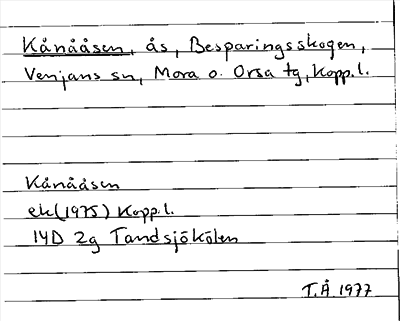 Kånååsen, ås, Besparingsskogen,
Venjans sn, Mora o. Orsa tg, Kopp.l.
Kånååsen
ek(1975) Kopp.l.
14D 2g Tandsjökölen
T.Å 1977